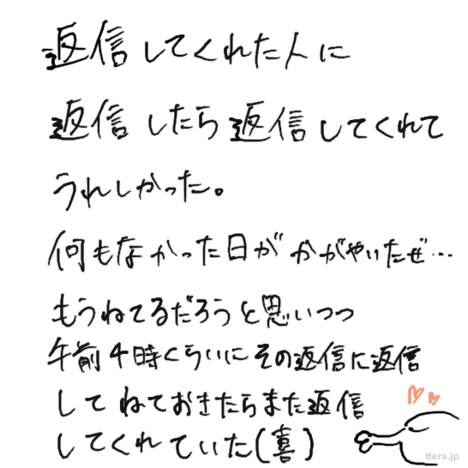 返信してくれた人に
返信したら返信してくれて
うれしかった。
何もなかった日がかがやいたぜ…
もうねてるだろうと思いつつ
午前4時くらいにその返信に返信
してねておきたらまた返信
してくれていた(喜)
tters.jp